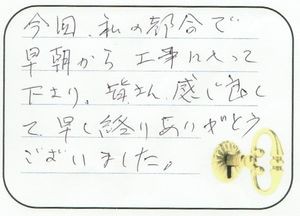 今回、私の都合で
早朝から工事に入って
下さり、皆さん感じ良く
て早く終りありがとう
ございました。